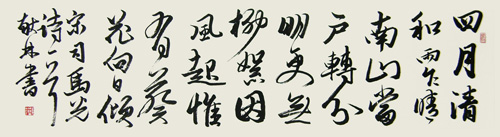 四月清
和雨乍晴
南山當
戶轉分
明更無
柳絮因
風起惟
有葵
花向日傾
宋司馬光
詩一首
林書